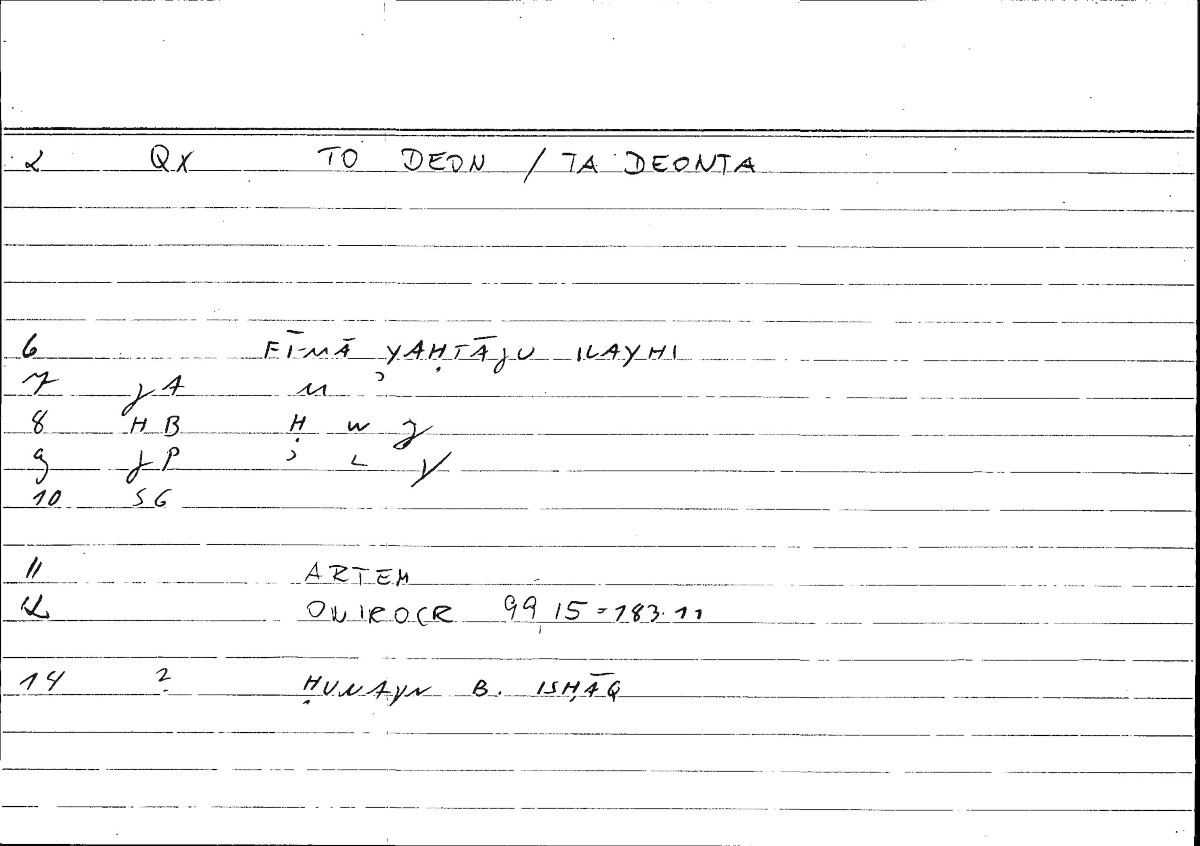 2 QX TO DEON / TA DEONTA
6 FĪ-MĀ YAḤTĀJU ILAYHI
7 JA M ʾ
8 HB Ḥ W J
9 JP ʾ L Y
10 SG
11 ARTEM
12 ONIROCR 99,15=183.11
14 ? ḤUNAYN B. ISḤĀQ